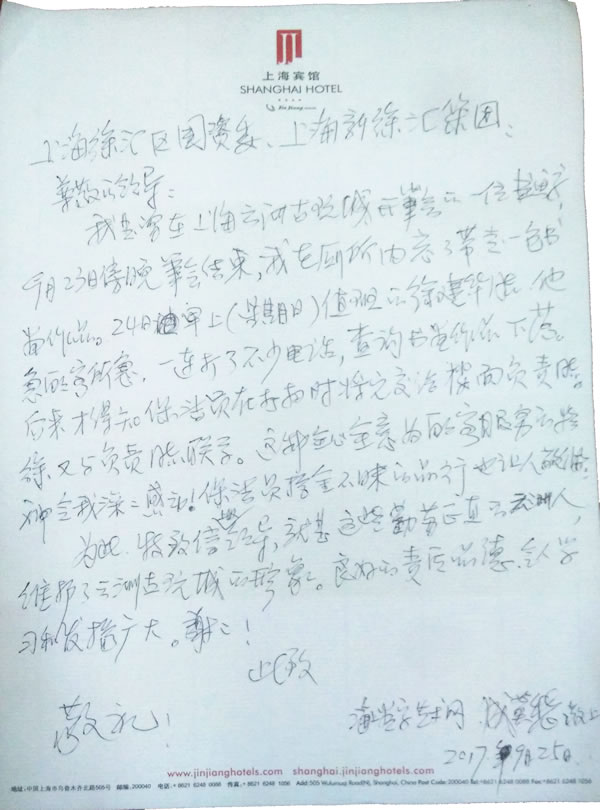 上海宾馆
SHANGHAI HOTEL
Jin Jiang
上海徐汇区国资委、上海新徐汇集团:
尊敬的领导:
我是深在上海云洲古玩城开笔会的一位
9月23日傍晚笔会结束,我在厕所内忘了带走一包书
画作品。24日早上(星期日)值班的徐建华 他
急的客所急,一连打了不少电话,查询书画作品下落。
后来才得知保洁员在打扫时将它交给楼面负责 。
徐又与负责 联系。这种全心全意为的客服务的精
神令我深深感动!保洁员拾金不昧的品行也让人敬佩。
为此,特致信贵领导,就是这些勤劳正直的云洲人,
维护了云洲古玩城的形象。良好的责任品德,令人学
习和发扬广大。谢谢!
此致
敬礼!
海 艺术网 敬上
2017年9月25日
www.jinjianghotels.com shanghai.jinjianghotels.com
地址:中国上海市乌鲁木齐北路505号 邮编:200040 电话:+8621 6248 0088 传真:+8621 6248 1056 Add:505 Wulumuqi Road(N), Shanghai China Post Code:200040 Tel:+8621 6248 0088 Fax:+8621 6248 1056